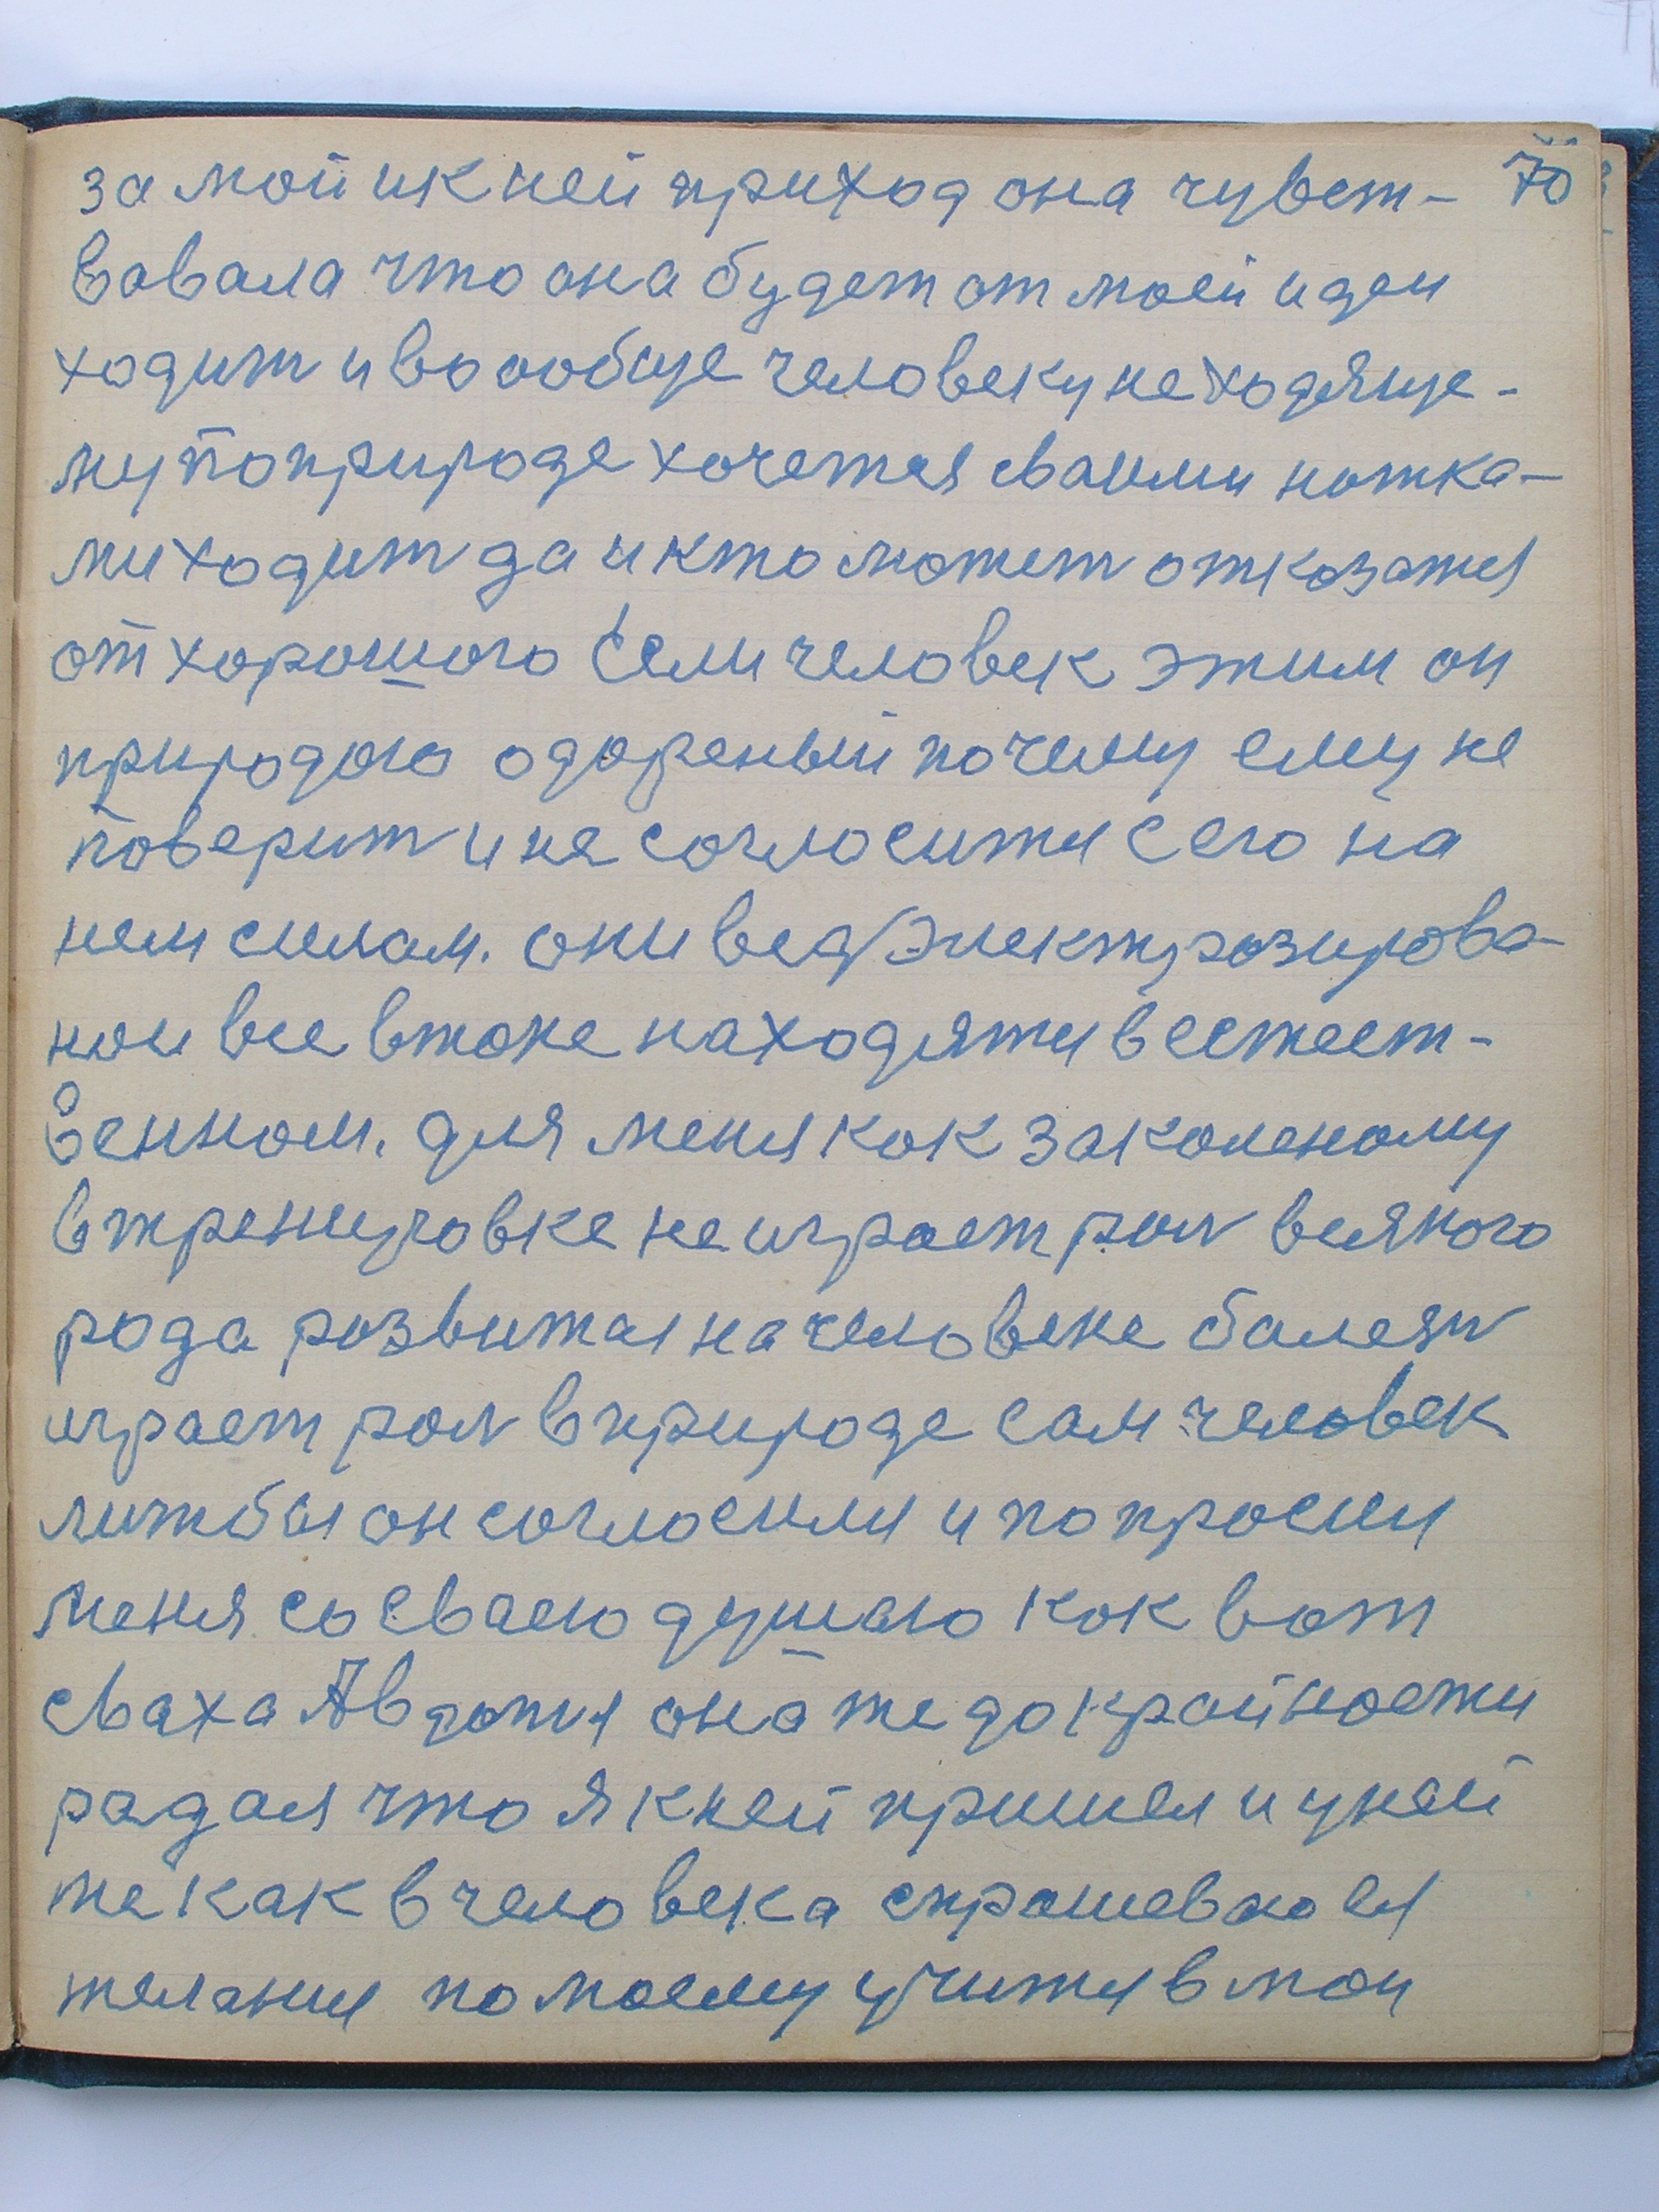 за мой ик ней приход она чувст- 70
вавала что она будет от моей идеи
ходит и воообще человеку неходяще-
му по природе хочется сваими ножка-
ми ходит да и кто может отказатся
от хорошого Если человек этим он
природою одореный почему ему не
поверит и не согласится с его на
нем силам. они вед электрозирова-
нои все втоке находятся в естест-
венном. для меня как закаленому
в тренировке не играет рол всякого
рода розвитая на человеке балезн
играет рол в природе сам человек
лижбы он согласился и попросил
меня со сваею душею как вот
сваха Авдотья она же до крайности
радая что я к ней пришел и у ней
же как в человека спрашеваю ея
желания по моему учится в мои